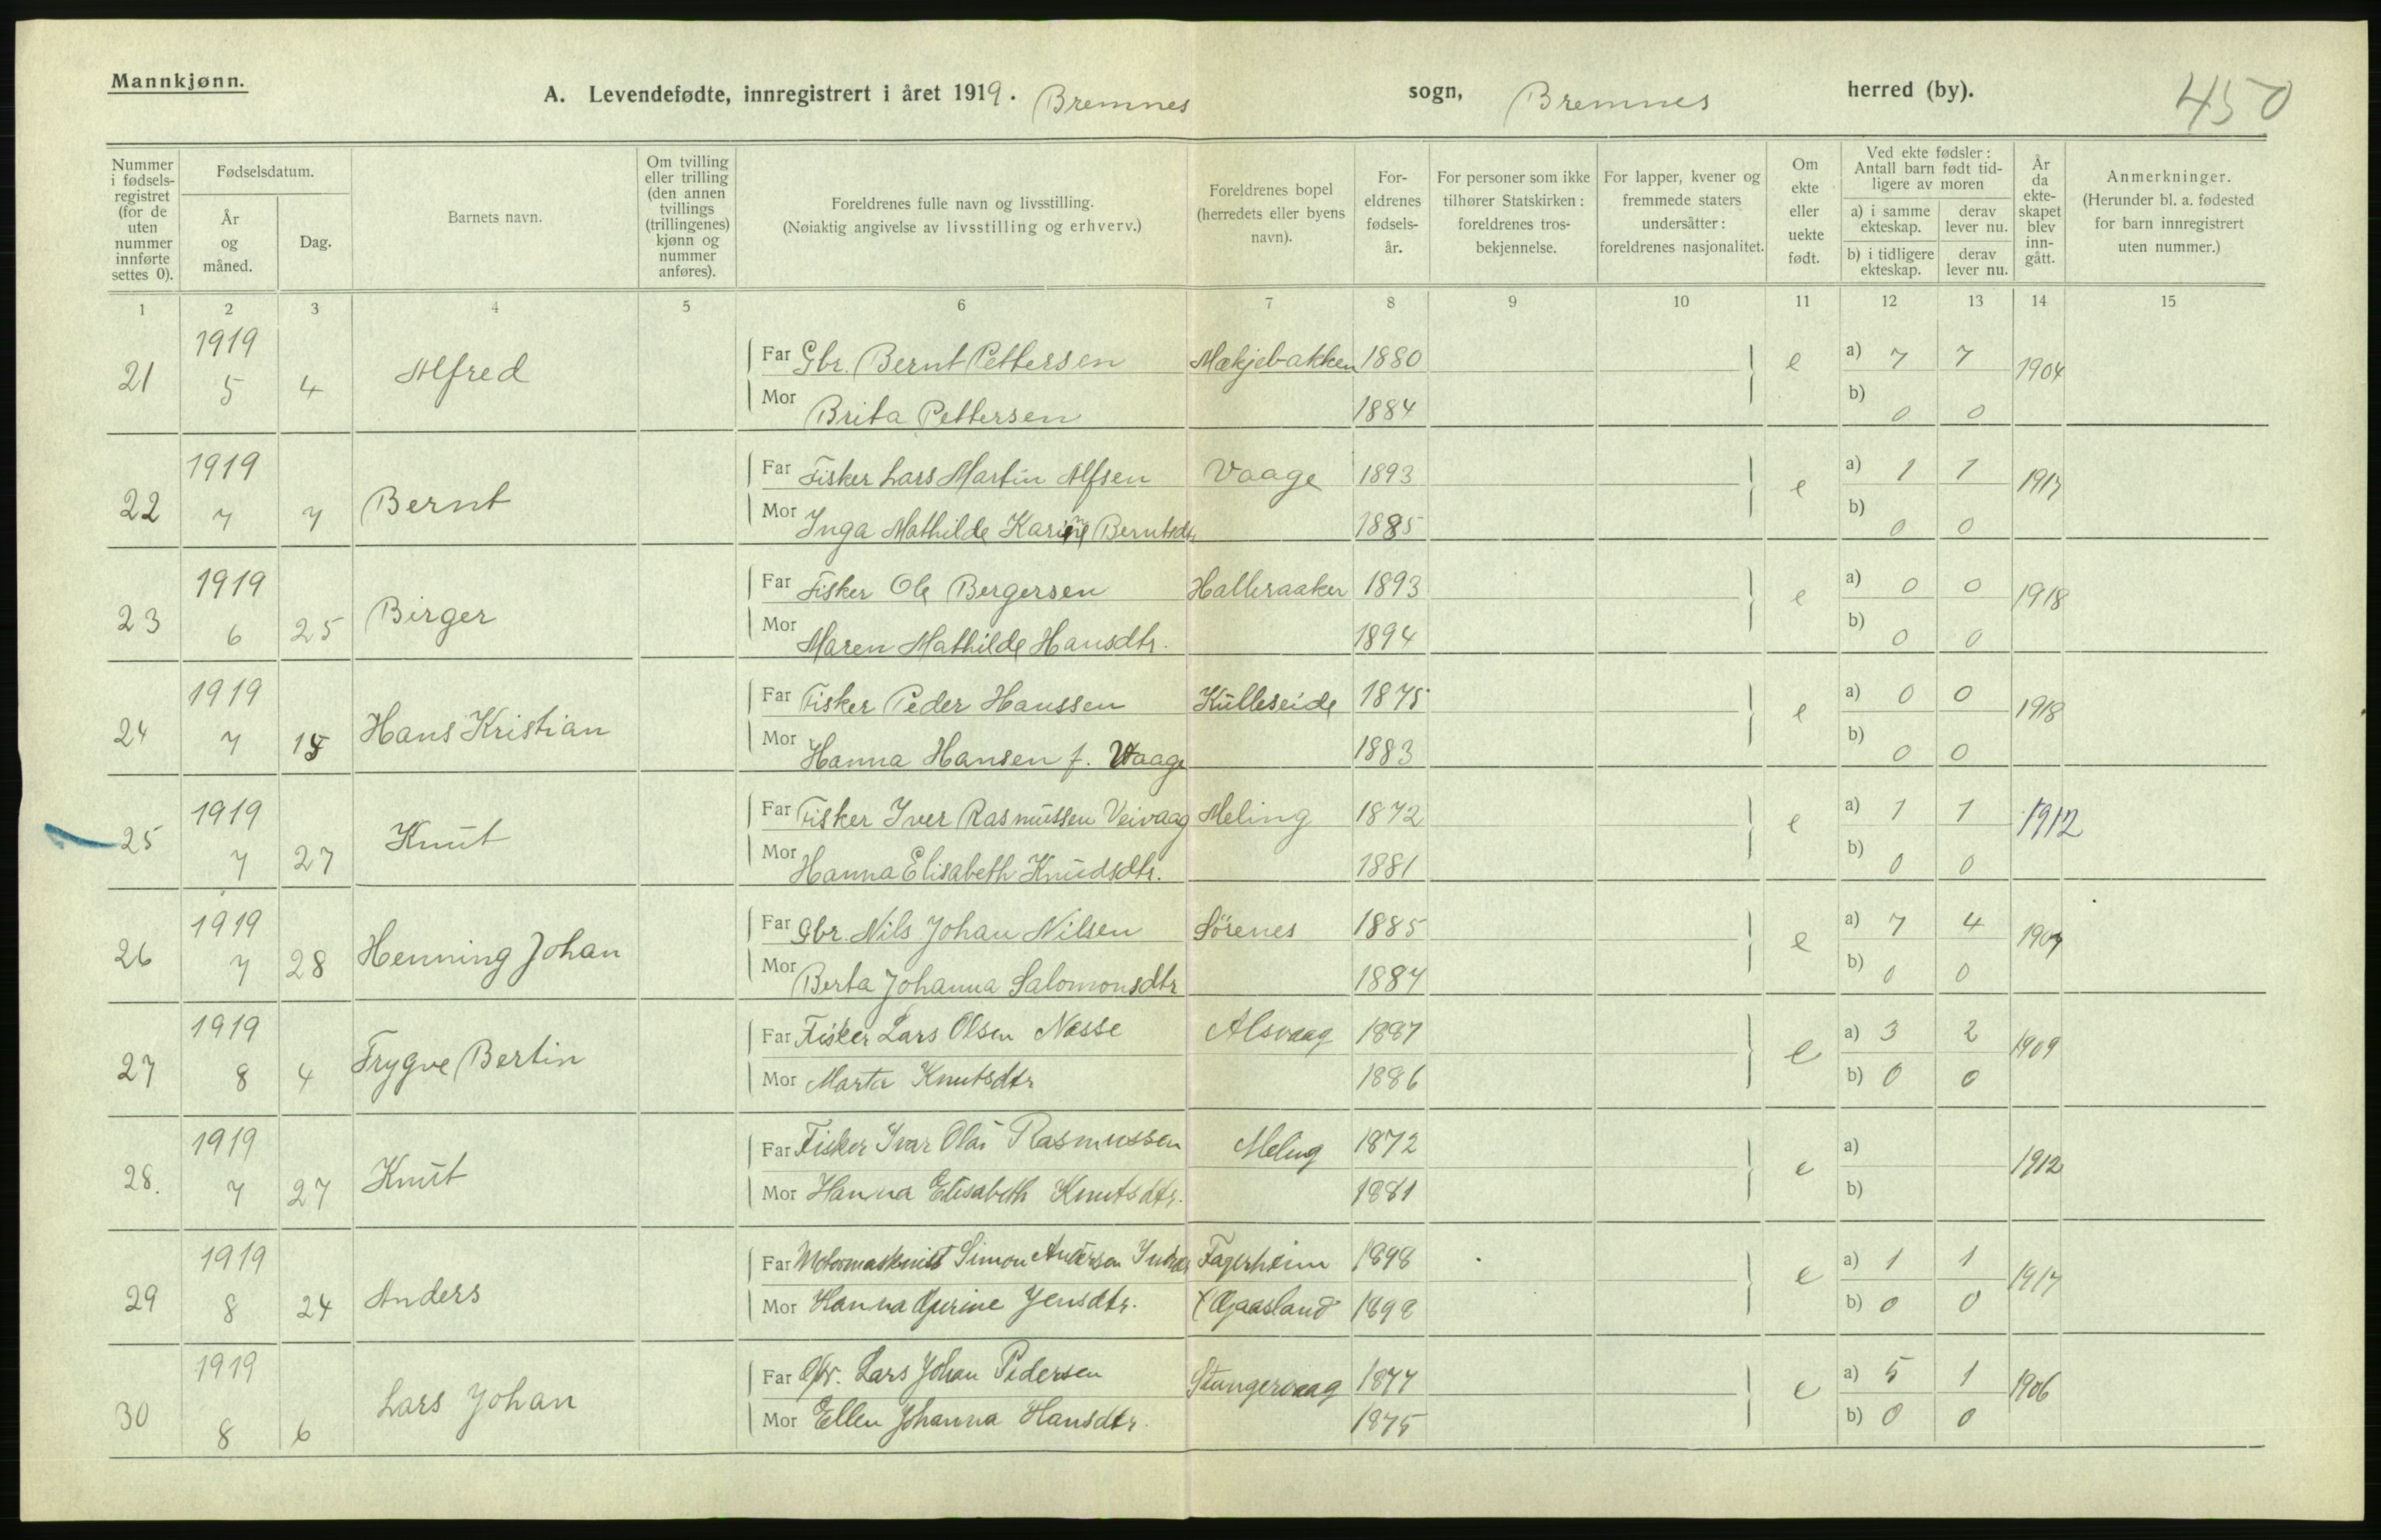 Mannkjønn.
A. Levendefødte, innregistrert i året 1919. Bremnes sogn, Bremnes herred (by).
450
Nummer i fødsels-registret (for de uten nummer innførte settes 0).
Fødselsdatum.
År og måned.
Dag.
Barnets navn.
Om tvilling eller trilling (den annen tvillings (trillingenes) kjønn og nummer anføres).
Foreldrenes fulle navn og livsstilling.
(Nøiaktig angivelse av livsstilling og erhverv.)
Foreldrenes bopel (herredets eller byens navn).
For-eldrenes fødsels-år.
For personer som ikke tilhører Statskirken: foreldrenes tros-bekjennelse.
For lapper, kvener og fremmede staters undersåtter: foreldrenes nasjonalitet.
Om ekte eller uekte født.
Ved ekte fødsler: Antall barn født tid-ligere av moren
a) i samme ekteskap.
derav lever nu.
b) i tidligere ekteskap.
derav lever nu.
År da ekte-skapet blev inn-gått.
Anmerkninger.
(Herunder bl. a. fødested for barn innregistrert uten nummer.)
1 2 3 4 5 6 7 8 9 10 11 12 13 14 15
21 1919 5 4 Alfred
Far Gbr. Bernt Pettersen Mækjebakken 1880 e a) 7 7 1904
Mor Brita Pettersen 1884 b) 0 0
22 1919 7 7 Bernt
Far Fisker Lars Martin Alfsen Vaage 1893 e a) 1 1 1917
Mor Inga Mathilde Karine Berntsdtr 1885 b) 0 0
23 1919 6 25 Birger
Far Fisker Ole Bergersen Halleraaker 1893 e a) 0 0 1918
Mor Maren Mathilde Hansdtr. 1894 b) 0 0
24 1919 7 15 Hans Kristian
Far Fisker Peder Hanssen Kulleseide 1875 e a) 0 0 1918
Mor Hanna Hansen f. Vaage 1883 b) 0 0
25 1919 7 27 Knut
Far Fisker Iver Rasmussen Veivaag Meling 1872 e a) 1 1 1912
Mor Hanna Elisabeth Knudsdtr. 1881 b) 0 0
26 1919 7 28 Henning Johan
Far Gbr. Nils Johan Nilsen Sörenes 1885 e a) 7 4 1907
Mor Berta Johanna Salomonsdtr 1887 b) 0 0
27 1919 8 4 Trygve Bertin
Far Fisker Lars Olsen Nesse Alsvaag 1887 e a) 3 2 1909
Mor Marta Knutsdtr 1886 b) 0 0
28. 1919 7 27 Knut
Far Fisker Ivar Olai Rasmussen Meling 1872 e a) 1912
Mor Hanna Elisabeth Knutsdtr. 1881 b)
29 1919 8 24 Anders
Far Motormaskinist Simon Andersen Fagerheim 1898 e a) 1 1 1917
Mor Hanna Gurine Jensdtr. Gaasland 1898 b) 0 0
30 1919 8 6 Lars Johan
Far Gbr. Lars Johan Pedersen Stangervaag 1877 e a) 5 1 1906
Mor Ellen Johanna Hansdtr. 1875 b) 0 0